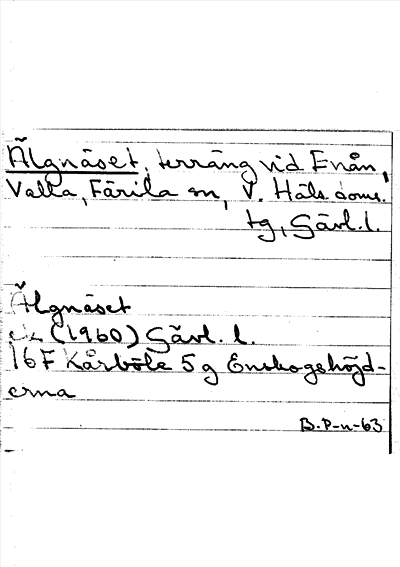 Älgnäset, terräng vid Enån,
Valla, Färila sn, V. Häls. doms.
tg, Gävl. l.
Älgnäset
ek (1960) Gävl. l.
16F Kårböle 5g Enskogshöjd-
erna
B.P-n-63